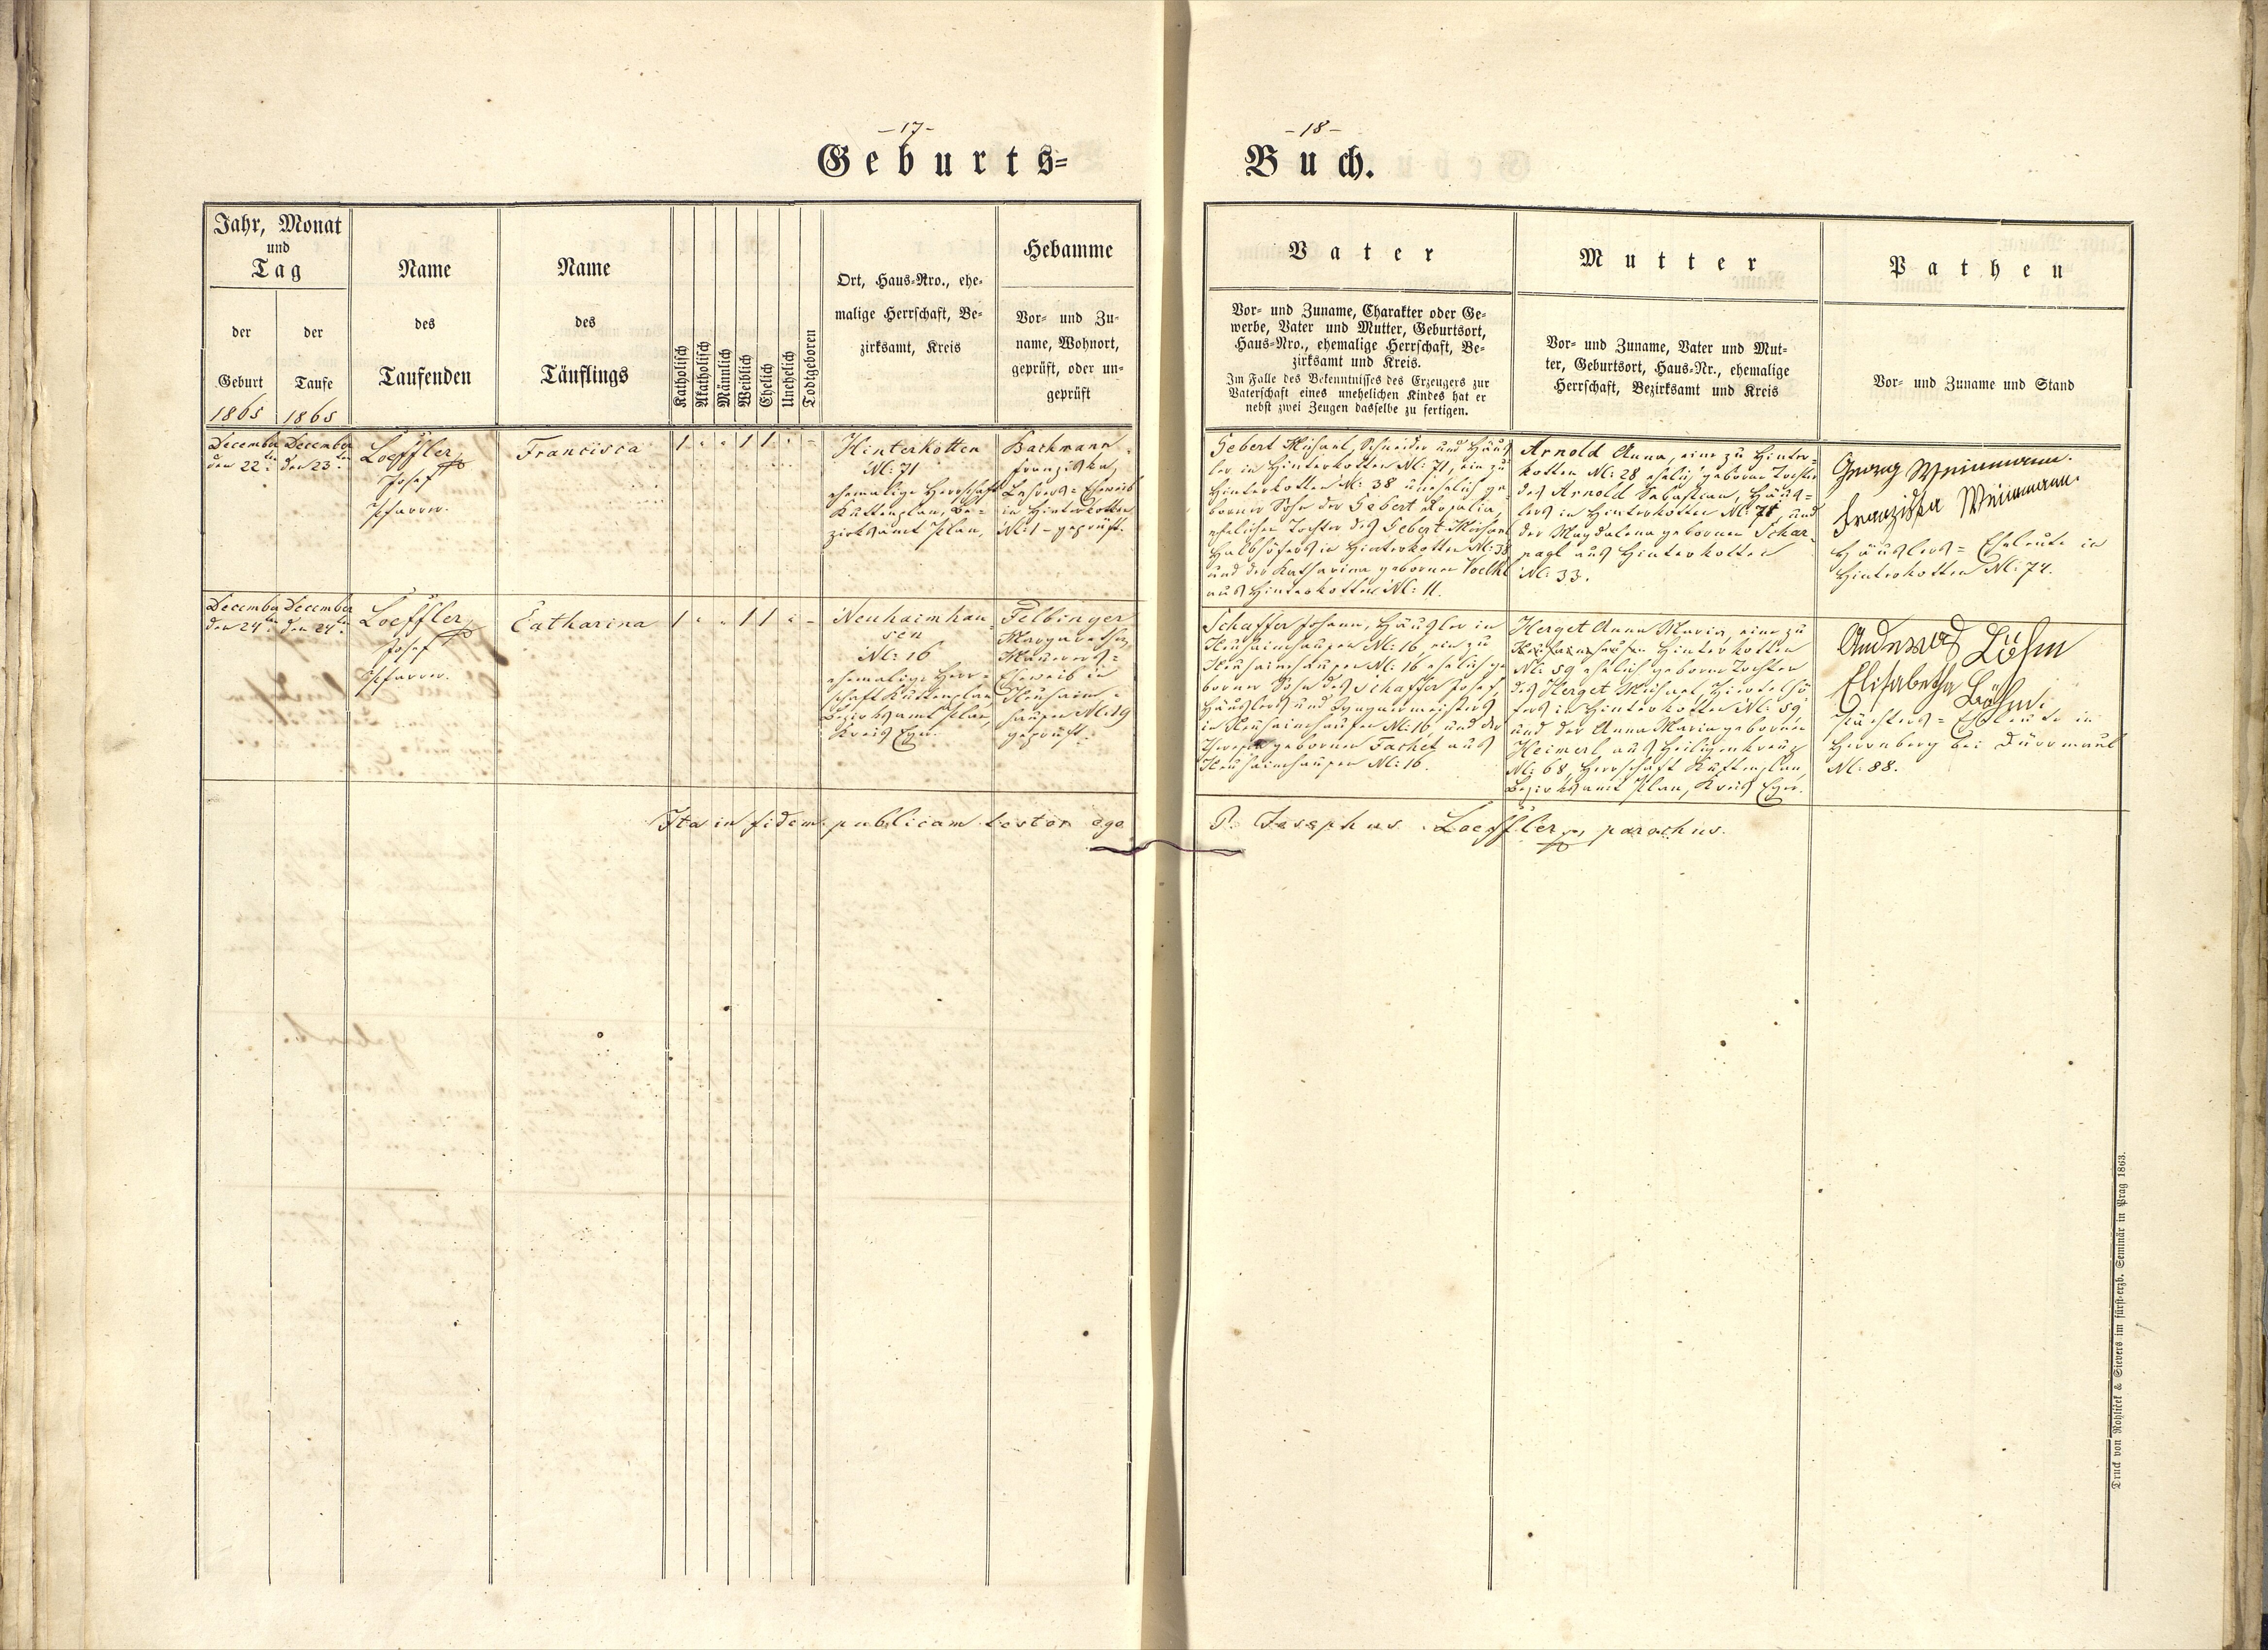 - 17 -
Geburts-
Jahr, Monat
und
Tag
der
Geburt
1865
der
Taufe
1865
Name
des
Taufenden
Name
des
Täuflings
Katholisch
Akatholisch
Männlich
Weiblich
Ehelich
Unehelich
Todtgeboren
Ort, Haus-Nro., ehe-
malige Herrschaft, Be-
zirksamt, Kreis
Hebamme
Vor- und Zu-
name, Wohnort,
geprüft, oder un-
geprüft
December
den 22ten
December
den 23ten
Loeffler
Josef
Pfarrer.
Francisca
1 1 1
Hinterkotten
N: 71
ehemalige Herrschaft
Kuttenplan, Be-
zirksamt Plan,
Bachmann
Franziska,
Lehrers= Eheweib
in Hinterkotten
N: 1 - geprüft.
December
den 24ten
December
den 24ten
Loeffler
Josef
Pfarrer.
Catharina
1 1 1
Neuhaimhau-
sen
N: 16
ehemalige Herr=
schaft Kuttenplan,
Bezirksamt Plan,
Kreis Eger.
Felbinger
Margaretha,
Maurers=
Eheweib in
Neuhaim=
hausen N: 19
geprüft.
Ita in fidem publicam testor ego
- 18 -
Buch.
Vater
Vor- und Zuname, Charakter oder Ge-
werbe, Vater und Mutter, Geburtsort,
Haus-Nro., ehemalige Herrschaft, Be-
zirksamt und Kreis.
Im Falle des Bekenntnisses des Erzeugers zur
Vaterschaft eines unehelichen Kindes hat er
nebst zwei Zeugen dasselbe zu fertigen.
Mutter
Vor- und Zuname, Vater und Mut-
ter, Geburtsort, Haus-Nr., ehemalige
Herrschaft, Bezirksamt und Kreis
Pathen
Vor- und Zuname und Stand
Gebert Michael, Schneider und Häus
ler in Hinterkotten N: 71, ein zu
Hinterkotten N: 38 unehelich ge-
borner Sohn der Gebert Rosalia,
ehelichen Tochter des Gebert Michael
Halbhöfers in Hinterkotten N: 38
und der Katharina gebornen Voelkl
aus Hinterkotten N: 11.
Arnold Anna, eine zu Hinter-
kotten N: 28 ehelich geborne Tochter
des Arnold Sebastian, Häus=
lers in Hinterkotten N: 71, und
der Magdalena gebornen Schar-
nagl aus Hinterkotten
N: 33.
Georg Weinmann.
Franziska Weinmann.
Häuslers= Eheleute in
Hinterkotten N: 74.
Schaffer Johann, Häusler in
Neuhaimhausen N: 16, ein zu
Neuhaimhausen N: 16 ehelich ge
borner Sohn des Schaffer Josef,
Häuslers und Wagnermeisters
in Neuhaimhausen N: 16 und der
Theresia gebornen Fachet aus
Neuhaimhausen N: 16.
Herget Anna Maria, eine zu
Hinterkotten
N: 59 ehelich geborne Tochter
des Herget Michael, Viertelhö
fers in Hinterkotten N: 59
und der Anna Maria gebornen
Heimerl aus Heiligenkreuz
N: 68, Herrschaft Kuttenplan,
Bezirksamt Plan, Kreis Eger.
Andreas Böhm
Elisabetha Böhm.
Pächters= Eheleute in
bei Dürrmaul
N: 88.
P. Josephus Loeffler, parochus.
Druck von Rohliček & Sievers im fürst-erzb. Seminär in Prag 1863.